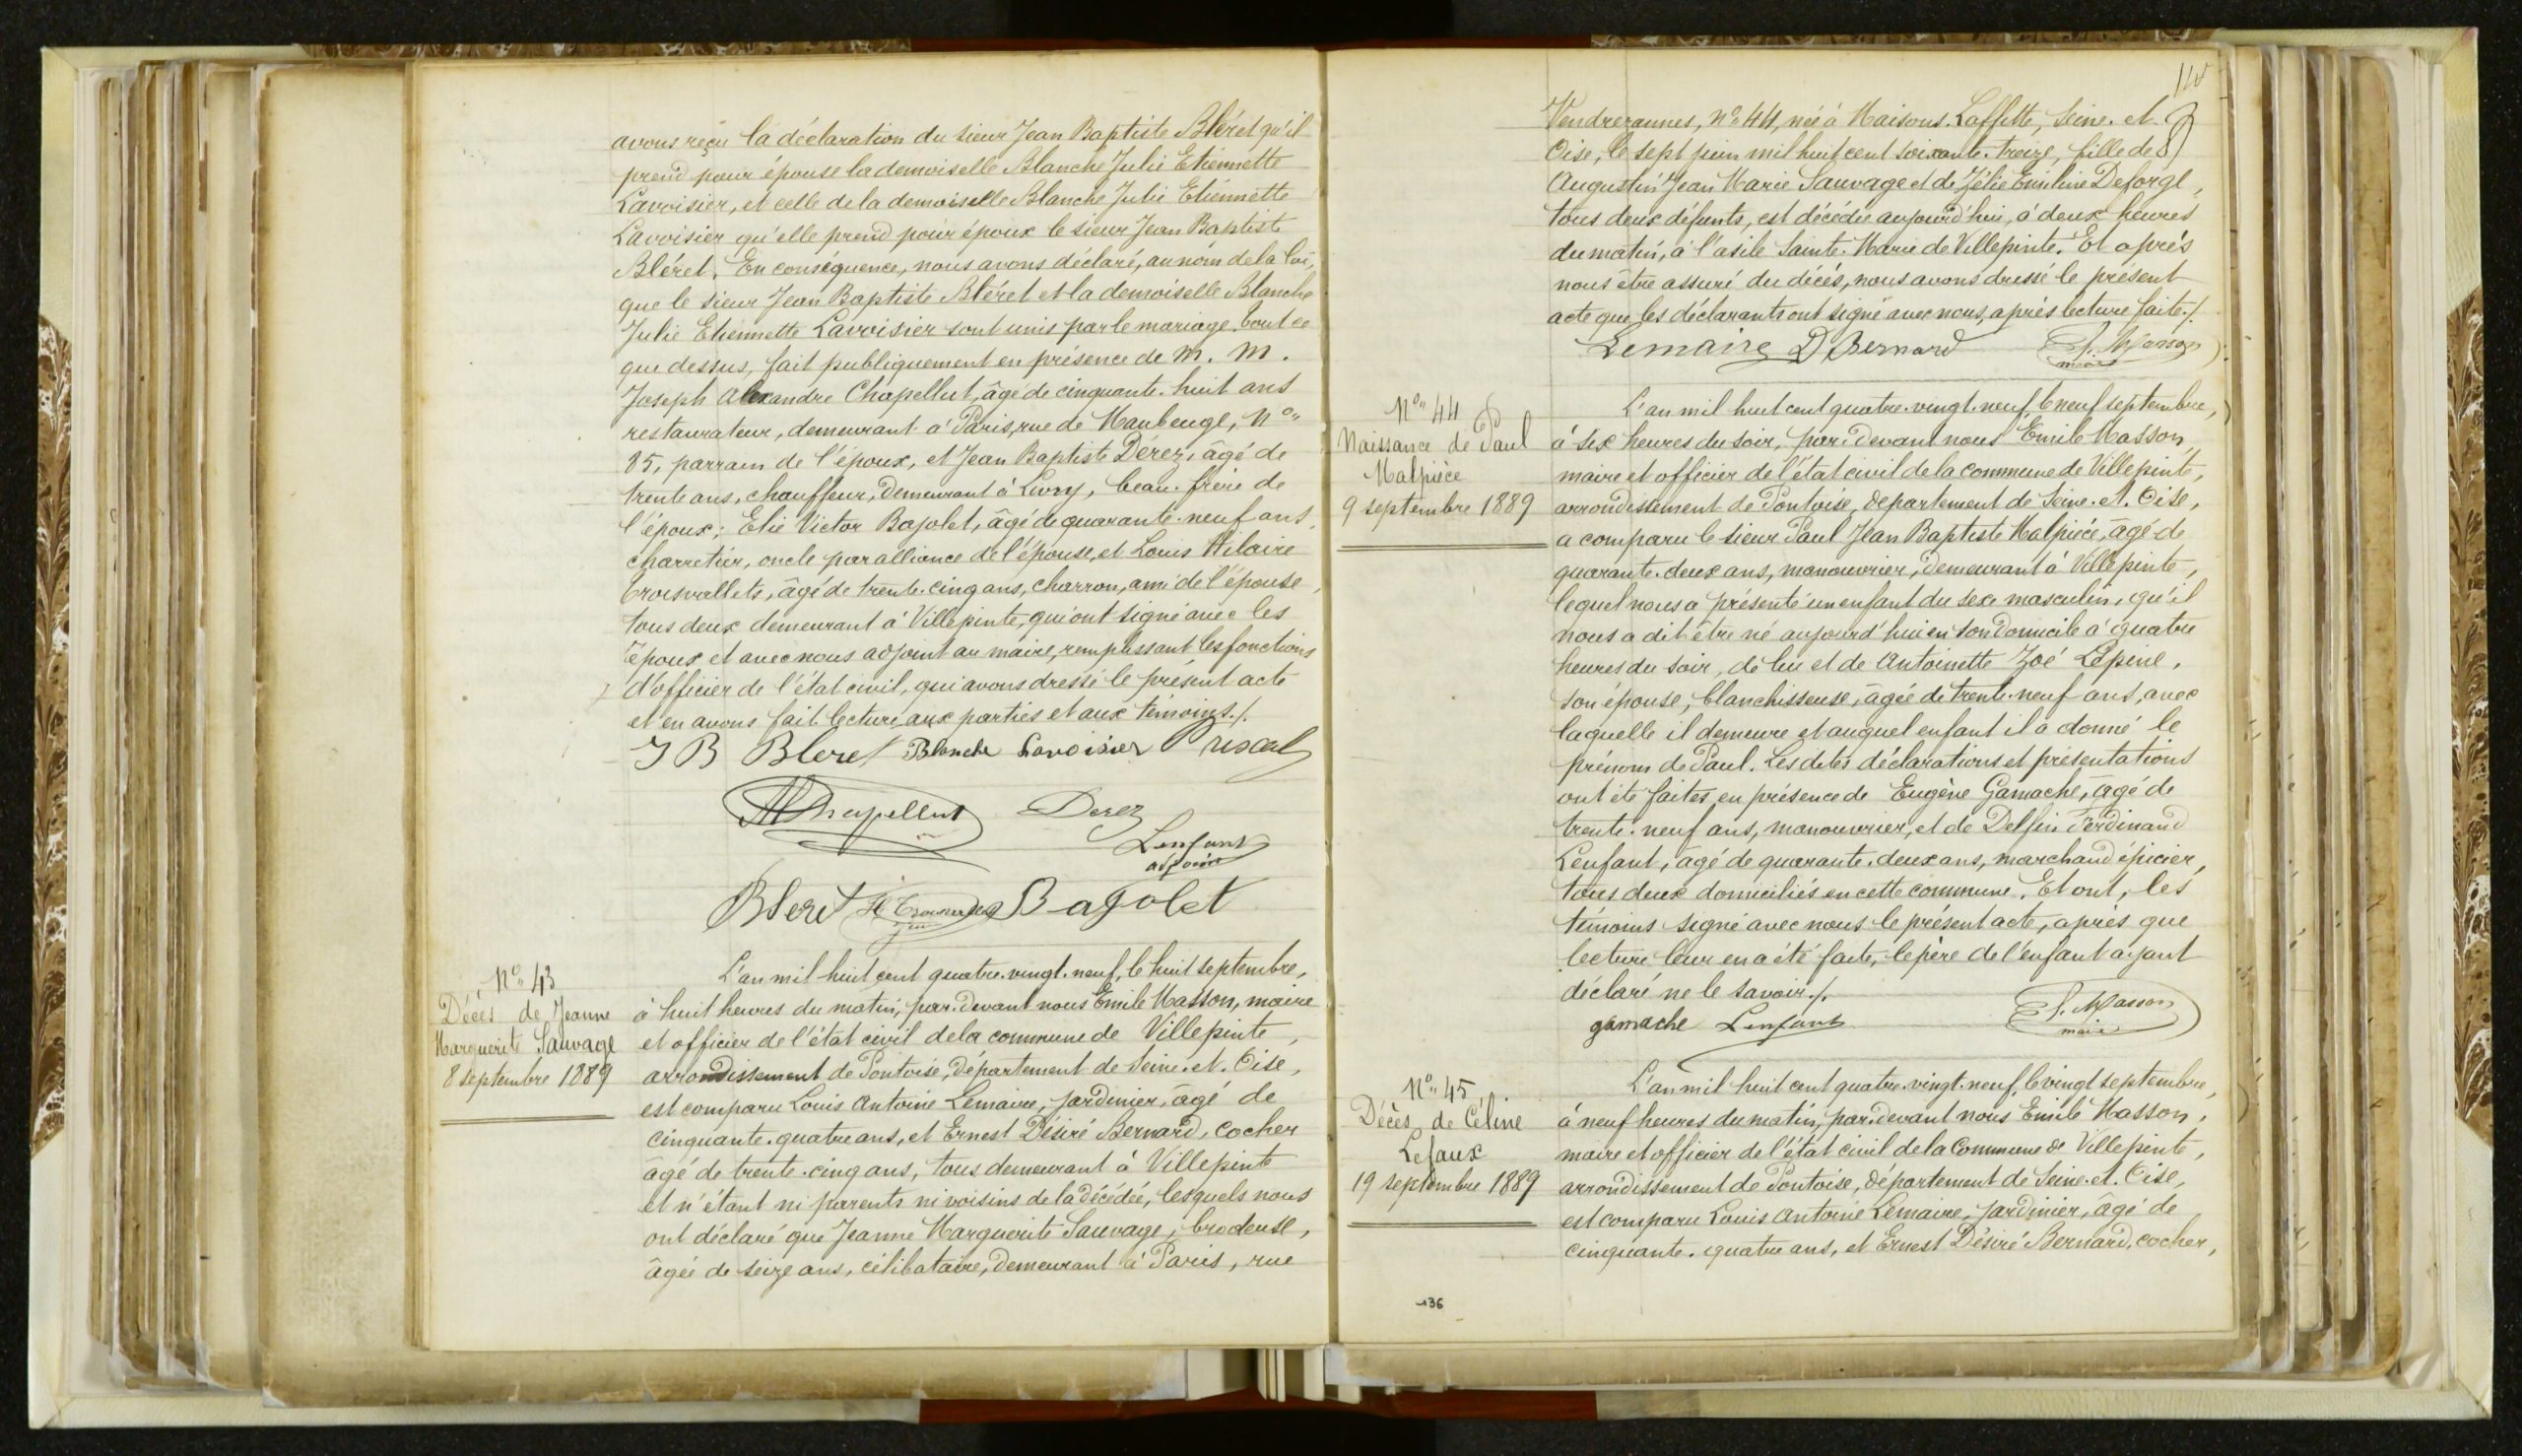 avons reçu la déclaration du sieur Jean Baptiste Bléret qu'il
prend pour épouse la demoiselle Blanche Julie Etiennette
Lavoisier, et celle de la demoiselle Blanche Julie Etiennette
Lavoisier qu'elle prend pour époux le sieur Jean Baptiste
Bléret. En conséquence, nous avons déclaré, au nom de la loi,
que le sieur Jean Baptiste Bléret et la demoiselle Blanche
Julie Etiennette Lavoisier sont unis par le mariage. Tout ce
que dessus, fait publiquement en présence de M. M.
Joseph Alexandre Chapellut, âgé de cinquante-huit ans
restaurateur, demeurant à Paris, rue de Maubeuge, No
85, parrain de l'époux, et Jean Baptiste Dérez, âgé de
trente ans, chauffeur, demeurant à Livry, beau-frère de
l'époux; Elie Victor Bajolet, âgé de quarante-neuf ans,
charretier, oncle par alliance de l'épouse, et Louis Hilaire
Troisvallets, âgé de trente-cinq ans, charron, ami de l'épouse,
tous deux demeurant à Villepinte, qui ont signé avec les
époux et avec nous adjoint au maire, remplissant les fonctions
d'officier de l'état civil, qui avons dressé le présent acte
et en avons fait lecture aux parties et aux témoins./.
J B Bleret Blanche Lavoisier
Chapellut Derez
Lenfant
adjoint
Bleret Bajolet
No 43
Décès de Jeanne
Marguerite Sauvage
8 septembre 1889
L'an mil huit cent quatre-vingt-neuf, le huit septembre,
à huit heures du matin, par-devant nous Emile Masson, maire
et officier de l'état civil de la commune de Villepinte,
arrondissement de Pontoise, département de Seine-et-Oise,
est comparu Louis Antoine Lemaire, jardinier, âgé de
cinquante-quatre ans, et Ernest Désiré Bernard, cocher
âgé de trente-cinq ans, tous demeurant à Villepinte
et n'étant ni parents ni voisins de la décédée, lesquels nous
ont déclaré que Jeanne Marguerite Sauvage, brodeuse,
âgée de seize ans, célibataire, demeurant à Paris, rue
Vendrezannes, No 44, née à Maisons-Laffitte, Seine-et-
Oise, le sept juin mil huit cent soixante-treize, fille de
Augustin Jean Marie Sauvage et de Zélie Emeline Deforge,
tous deux défunts, est décédée aujourd'hui, à deux heures
du matin, à l'asile Sainte-Marie de Villepinte. Et après
nous être assuré du décès, nous avons dressé le présent
acte que les déclarants ont signé avec nous, après lecture faite./.
Lemaire D Bernard E. Masson
maire
No 44
Naissance de Paul
Malpièce
9 septembre 1889
L'an mil huit cent quatre-vingt-neuf, le neuf septembre,
à six heures du soir, par-devant nous Emile Masson,
maire et officier de l'état civil de la commune de Villepinte,
arrondissement de Pontoise, département de Seine-et-Oise,
a comparu le sieur Paul Jean Baptiste Malpièce, âgé de
quarante-deux ans, manouvrier, demeurant à Villepinte,
lequel nous a présenté un enfant du sexe masculin, qu'il
nous a dit être né aujourd'hui en son domicile à quatre
heures du soir, de lui et de Antoinette Zoé Lépine,
son épouse, blanchisseuse, âgée de trente-neuf ans, avec
laquelle il demeure et auquel enfant il a donné le
prénom de Paul. Les dites déclaration et présentations
ont été faites en présence de Eugène Gamache, âgé de
trente-neuf ans, manouvrier, et de Delfin Ferdinand
Lenfant, âgé de quarante-deux ans, marchand épicier,
tous deux domiciliés en cette commune. Et ont, les
témoins signé avec nous le présent acte, après que
lecture leur en a été faite, le père de l'enfant ayant
déclaré ne le savoir./.
gamache Lenfant E. Masson
maire
No 45
Décès de Céline
Lefaux
19 septembre 1889
L'an mil huit cent quatre-vingt-neuf, le vingt septembre,
à neuf heures du matin, par-devant nous Emile Masson,
maire et officier de l'état civil de la Commune de Villepinte,
arrondissement de Pontoise, département de Seine-et-Oise,
est comparu Louis Antoine Lemaire, jardinier, âgé de
cinquante-quatre ans, et Ernest Désiré Bernard, cocher,
136